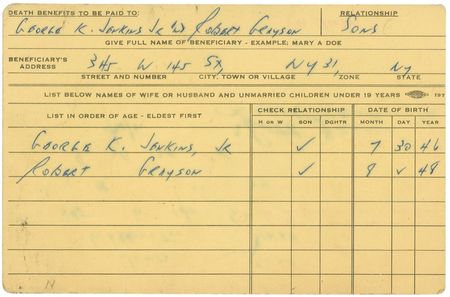 DEATH BENEFITS TO BE PAID TO: RELATIONSHIP
George K. Jenkins Jr Robert Grayson Sons
GIVE FULL NAME OF BENEFICIARY - EXAMPLE; MARY A DOE
BENEFICIARY'S ADDRESS 345 W 145 St, NY 31, NY
STREET AND NUMBER CITY, TOWN OR VILLAGE ZONE STATE
LIST BELOW NAMES OF WIFE OR HUSBAND AND UNMARRIED CHILDREN UNDER 19 YEARS
LIST IN ORDER OF AGE - ELDEST FIRST CHECK RELATIONSHIP DATE OF BIRTH
H OR W SON DGHTR MONTH DAY YEAR
George K. Jenkins, Jr ✓ 7 30 46
Robert Grayson ✓ 8 ✓ 48